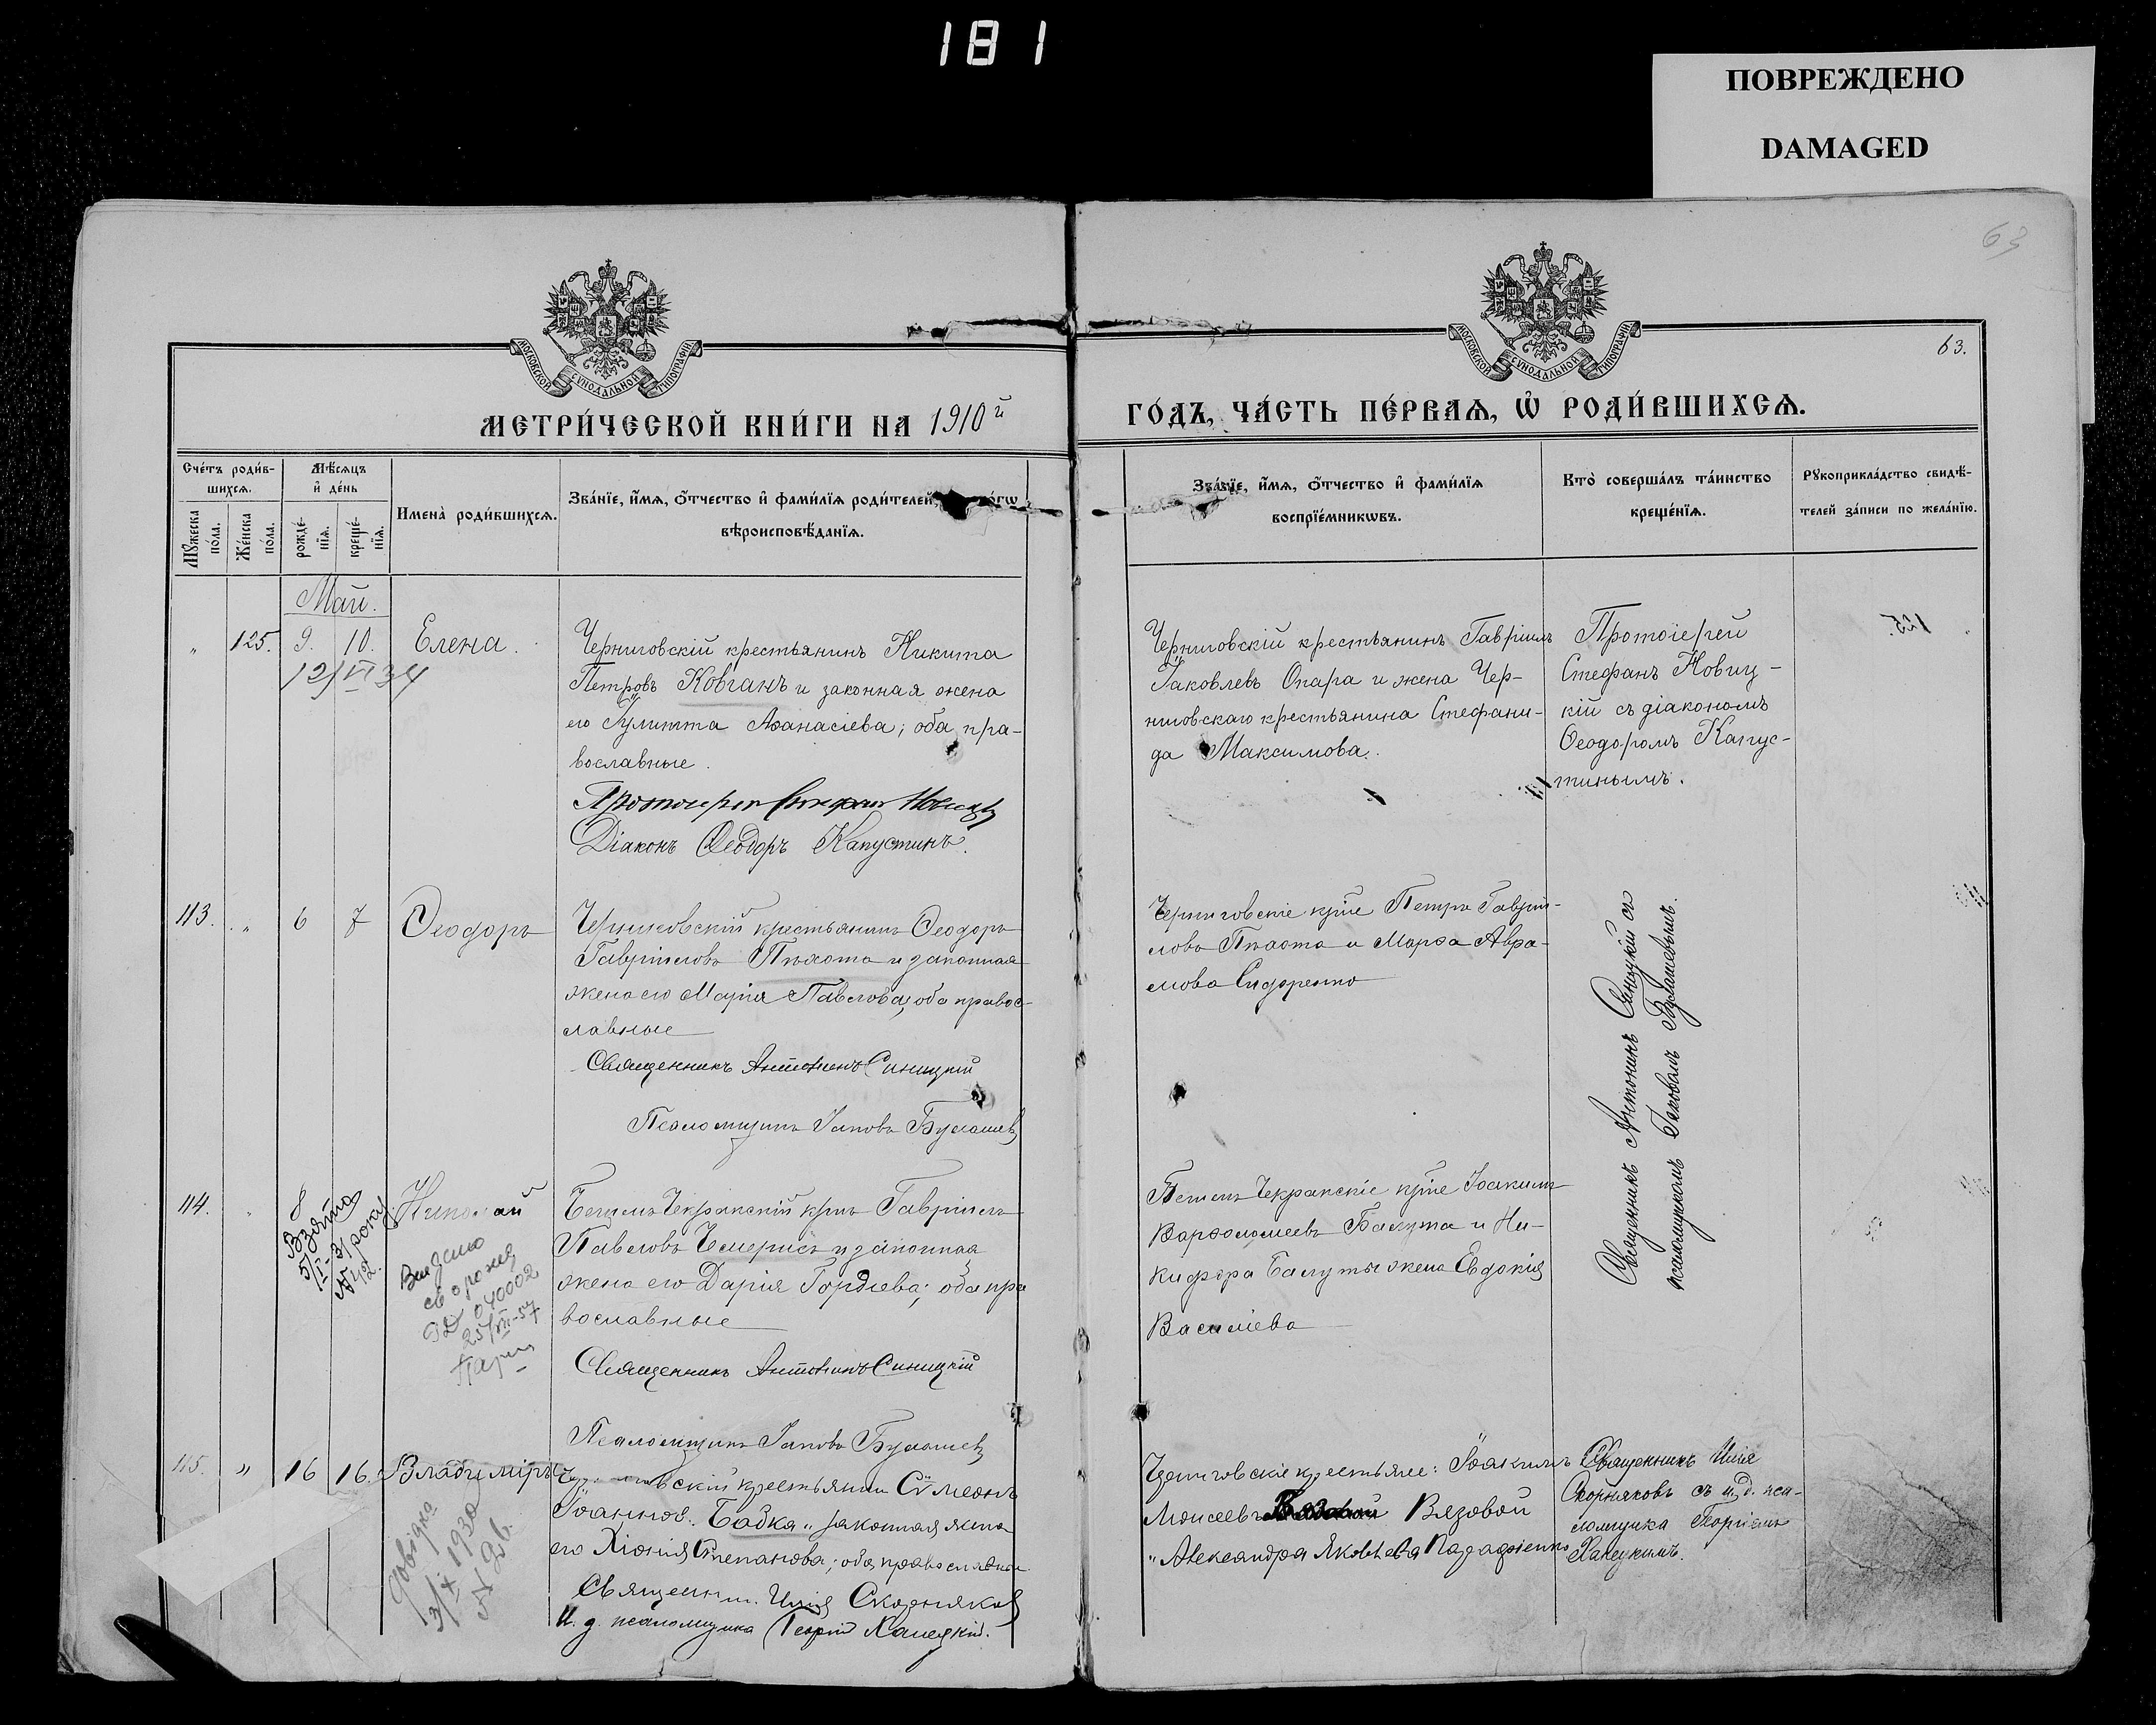 181
ПОВРЕЖДЕНО
DAMAGED
63
63.
МОСКОВСКОЙ СѴНОДАЛЬНОЙ ТИПОГРАФІИ
МОСКОВСКОЙ СѴНОДАЛЬНОЙ ТИПОГРАФІИ
МЕТРИ́ЧЕСКОЙ КНИ́ГИ НА 1910й
ГО́ДЪ, ЧА́СТЬ ПЕ́РВАѦ, Ѡ҆ РОДИ́ВШИХСѦ.
Сче́тъ роди́в-
шихсѧ.
Мꙋжеска
по́ла.
Же́нска
по́ла.
Мѣ́сѧцъ
и҆ де́нь
рожде́-
нїѧ.
креще́-
нїѧ.
Имена̀ роди́вшихсѧ.
Зва́нїе, и҆́мѧ, ѻ҆́тчество и҆ фами́лїѧ роди́телей,
вѣроисповѣ́данїѧ.
Зва́нїе, и҆́мѧ, ѻ҆́тчество и҆ фами́лїѧ
воспрїе́мникѡвъ.
Кто̀ соверша́лъ та́инство
креще́нїѧ.
Рꙋкоприкла́дство свидѣ́-
телей за́писи по жела́нїю.
Май.
" 125. 9. 10. Елена.
12/VI 34
Черниговскій крестьянинъ Никита
Петровъ Ковганъ и законная жена
его Іулитта Аѳанасіева; оба пра-
вославные.
Протоіерей Стефанъ Новицкій
Діаконъ Ѳеодоръ Капустинъ.
Черниговскій крестьянинъ Гавріилъ
Іаковлевъ Опара и жена Чер-
ниговскаго крестьянина Стефани-
да Максимова.
Протоіерей
Стефанъ Новиц-
кій съ діакономъ
Ѳеодоромъ Капус-
тинымъ.
113. " 6 7 Ѳеодоръ
Черниговскій крестьянинъ Ѳеодоръ
Гавріиловъ Пѣхота и законная
жена его Марія Павлова, оба правос-
лавные
Священникъ Антонинъ Синицкій
Псаломщикъ Іаковъ
Черниговскіе кр͠не Петръ Гаврі-
ловъ Пѣхота и Марѳа Авра-
мова Сидоренко
Священникъ Антонинъ Синицкій съ
псаломщикомъ Іаковомъ
114. " 8 Николай
Взято
5/II-31 року
Видано
св о рожд
040002
25/VII-57
Чекракскій кр͠нъ Гавріилъ
Павловъ Чемерисъ и законная
жена его Дарія Гордіева; оба пра
вославные
Священникъ Антонинъ Синицкій
Псаломщикъ Іаковъ
Чекракскіе кр͠не Іоакимъ
Варѳоломеевъ Балута и Ни-
кифора Балуты жена Евдокія
Василіева
115. " 16 16. Владиміръ
Довідка
3/X 1930
N 26.
крестьянинъ Сѵмеонъ
Іоанновъ Бабка и законная жена
его Хіонія Степанова; оба православные
Священник. Илія Скорняковъ
И. д. псаломщика Георгій Ханецкій.
Черниговскіе крестьяне: Іоакимъ
Моисеевъ Вязовой
и Александра Яковлева
Священникъ Илія
Скорняковъ съ и. д. пса-
ломщика Георгіемъ
Ханецкимъ.